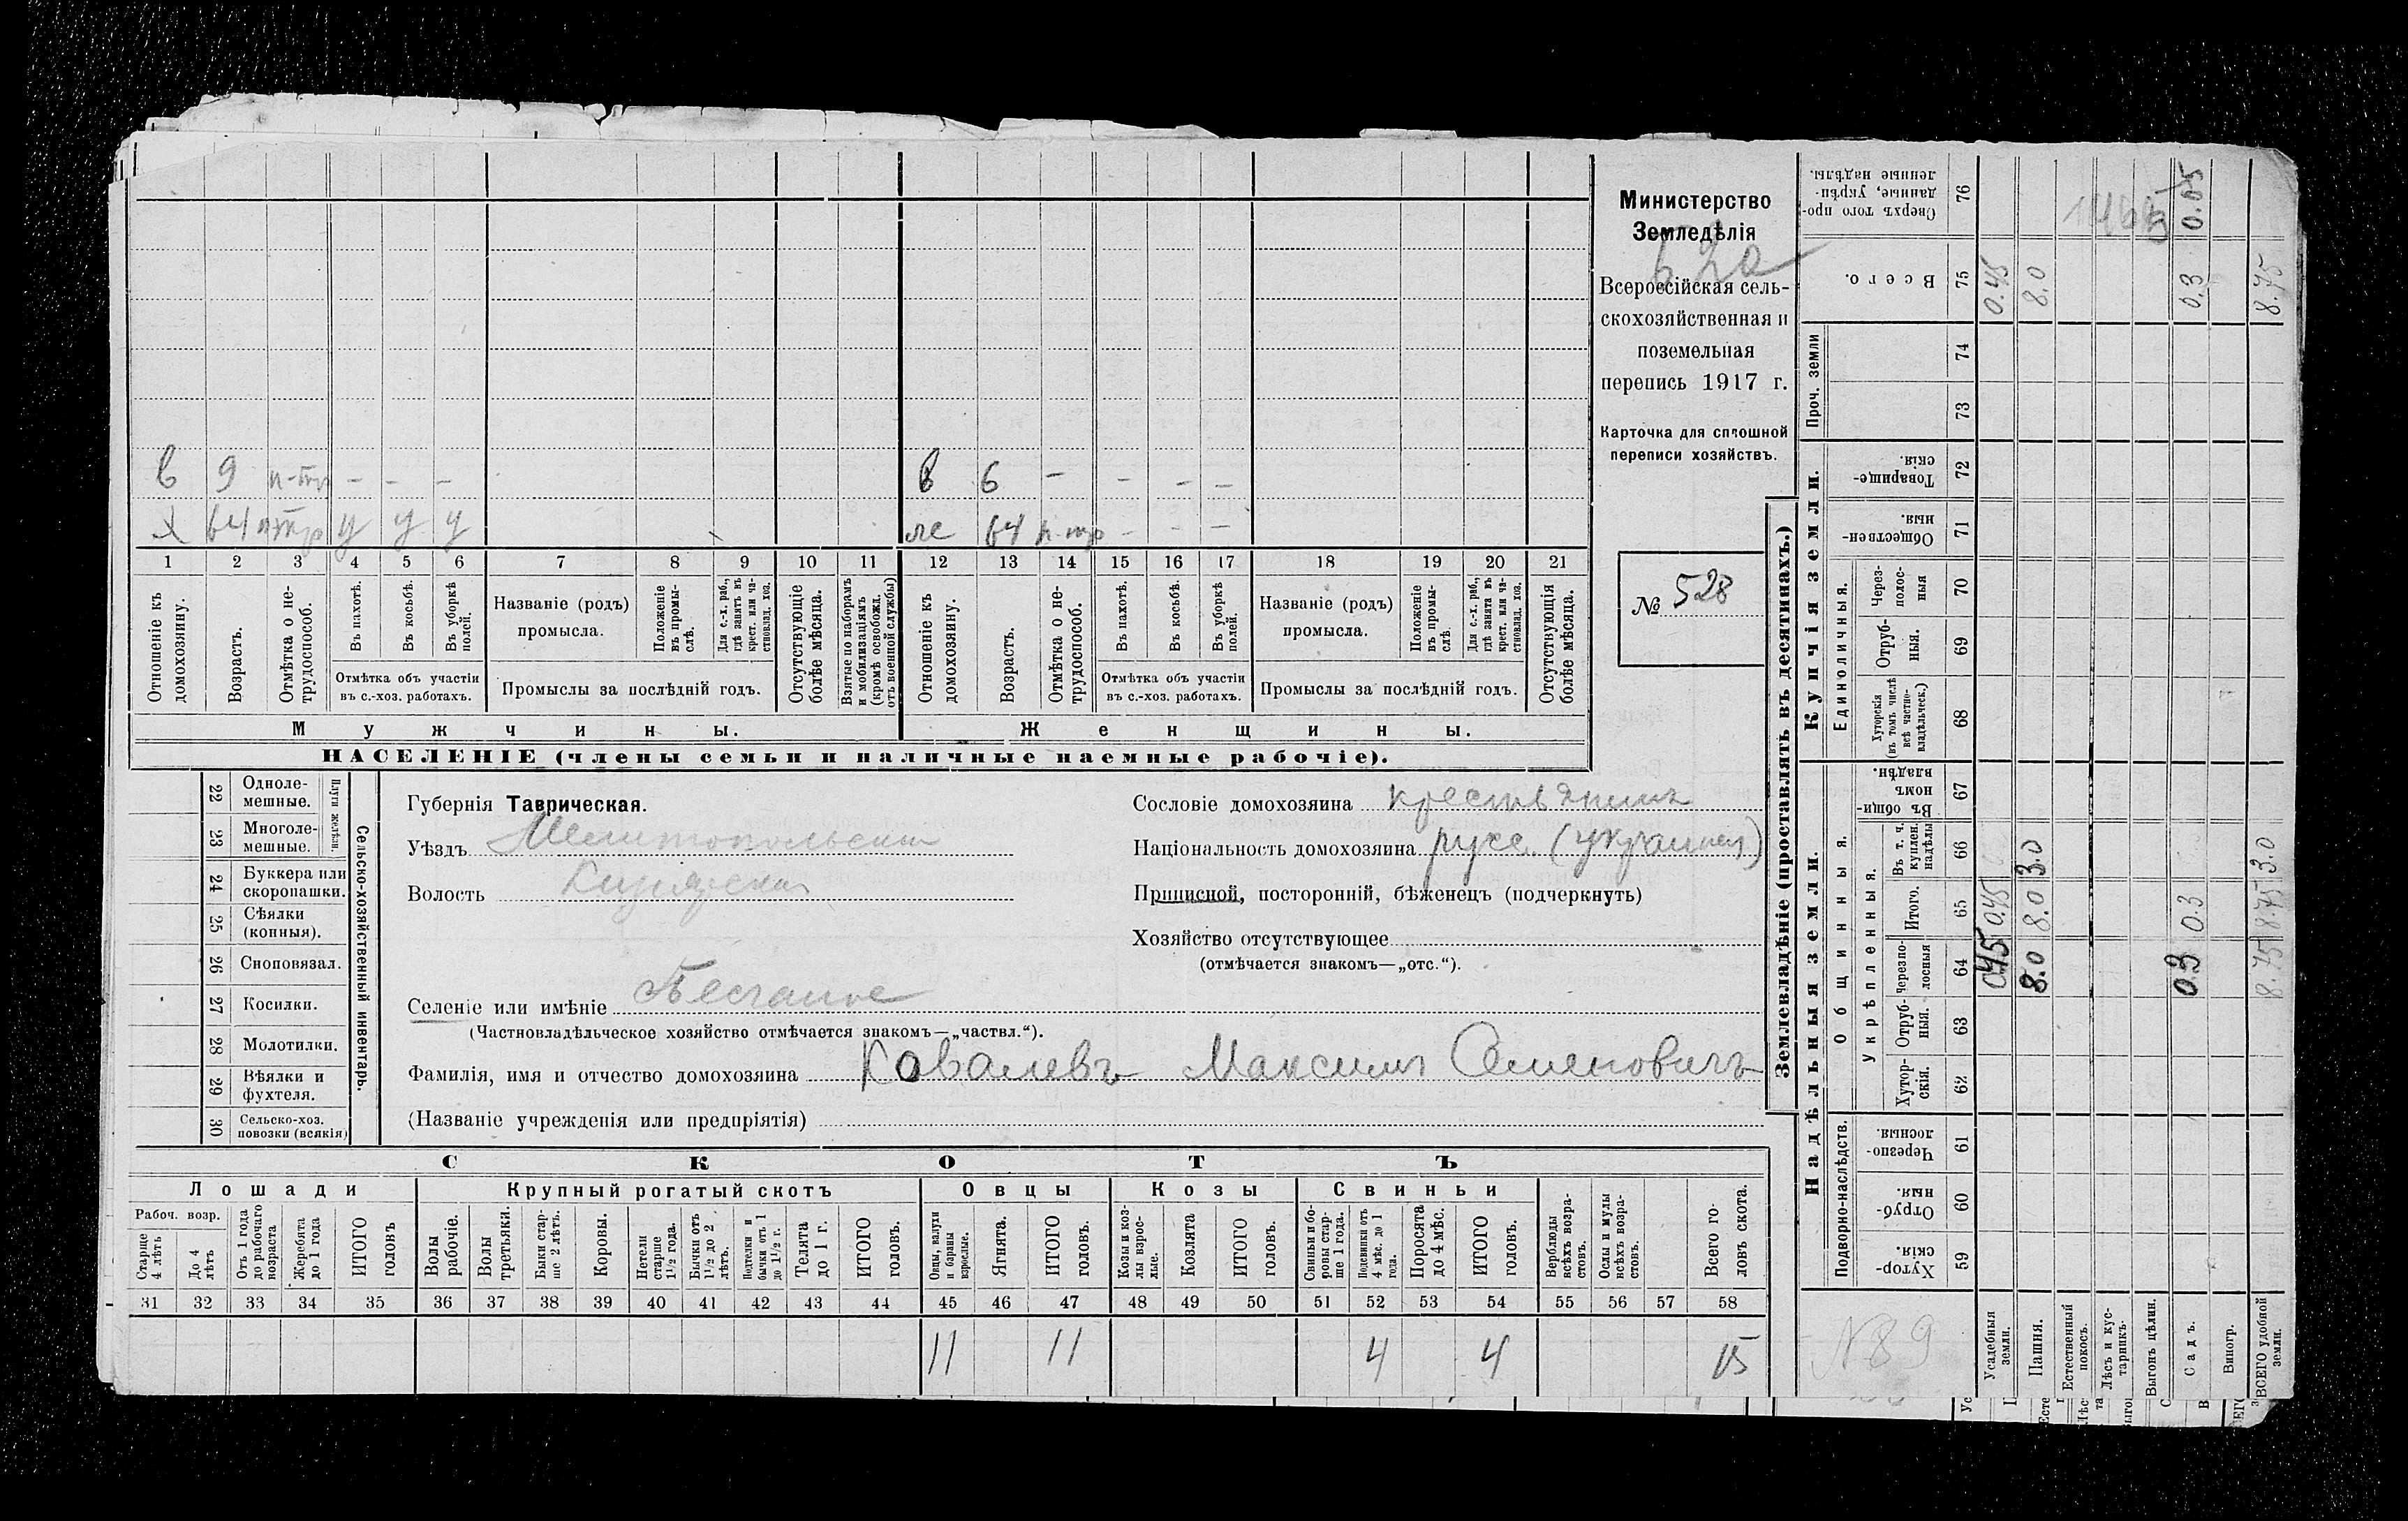 в 9 н-тр - - -
в 6 - - - -
х 64 нтр у у у
ж 64 н-тр - - -
1 2 3 4 5 6 7 8 9 10 11 12 13 14 15 16 17 18 19 20 21
Отношеніе къ домохозяину.
Возрастъ.
Отмѣтка о нетрудоспособ.
Въ пахотѣ.
Въ косьбѣ.
Въ уборкѣ полей.
Отмѣтка объ участіи
въ с.-хоз. работахъ.
Названіе (родъ)
промысла.
Положеніе въ промыслѣ.
Для с.-х. раб., гдѣ занятъ въ крест. или частновлад. хоз.
Промыслы за послѣдній годъ.
Отсутствующіе болѣе мѣсяца.
Взятые по наборамъ и мобилизаціямъ (кромѣ освобожд. отъ военной службы)
Отношеніе къ домохозяину.
Возрастъ.
Отмѣтка о нетрудоспособ.
Въ пахотѣ.
Въ косьбѣ.
Въ уборкѣ полей.
Отмѣтка объ участіи
въ с.-хоз. работахъ.
Названіе (родъ)
промысла.
Положеніе въ промыслѣ.
Для с.-х. раб., гдѣ занята въ крест. или частновлад. хоз.
Промыслы за послѣдній годъ.
Отсутствующія болѣе мѣсяца.
Мужчины.
Женщины.
НАСЕЛЕНІЕ (члены семьи и наличные наемные рабочіе).
Министерство
Земледѣлія
62а
Всероссійская сель-
скохозяйственная и
поземельная
перепись 1917 г.
Карточка для сплошной
переписи хозяйствъ.
№ 528
22 Одноле-
мешные.
23 Многоле-
мешные.
Плуги желѣзн.
24 Буккера или
скоропашки.
25 Сѣялки
(конныя).
26 Сноповязал.
27 Косилки.
28 Молотилки.
29 Вѣялки и
фухтеля.
30 Сельско-хоз.
повозки (всякія)
Сельско-хозяйственный инвентарь.
Губернія Таврическая.
Уѣздъ Мелитопольскій
Волость Кизіярская
Селеніе или имѣніе Песчаное
(Частновладѣльческое хозяйство отмѣчается знакомъ—„частвл.“).
Фамилія, имя и отчество домохозяина Ковалевъ Максимъ Семеновичъ
(Названіе учрежденія или предпріятія)
Сословіе домохозяина крестьянинъ
Національность домохозяина русс. (украинец)
Приписной, посторонній, бѣженецъ (подчеркнуть)
Хозяйство отсутствующее
(отмѣчается знакомъ—„отс.“).
СКОТЪ
Лошади
Крупный рогатый скотъ
Овцы
Козы
Свиньи
Рабоч. возр.
Старше 4 лѣтъ
До 4 лѣтъ
Отъ 1 года до рабочаго возраста
Жеребята до 1 года
ИТОГО головъ
Волы рабочіе.
Волы третьяки.
Быки старше 2 лѣтъ.
Коровы.
Нетели старше 1½ года.
Бычки отъ 1½ до 2 лѣтъ.
Подтелки и бычки отъ 1 до 1½ г.
Телята до 1 г.
ИТОГО головъ.
Овцы, валухи и бараны взрослые.
Ягнята.
ИТОГО головъ.
Козы и козлы взрослые.
Козлята
ИТОГО головъ.
Свиньи и боровы старше 1 года.
Подсвинки отъ 4 мѣс. до 1 года.
Поросята до 4 мѣс.
ИТОГО головъ.
Верблюды всѣхъ возрастовъ.
Ослы и мулы всѣхъ возрастовъ.
Всего головъ скота.
31 32 33 34 35 36 37 38 39 40 41 42 43 44 45 46 47 48 49 50 51 52 53 54 55 56 57 58
11 11 4 4 15
Землевладѣніе (проставлять въ десятинахъ.)
Надѣльныя земли.
Купчія земли.
Проч. земли
Подворно-наслѣдств.
Общинныя.
Укрѣпленныя.
Единоличныя.
Хутор-
скія. 59
Отруб-
ныя. 60
Черезпо-
лосныя. 61
Хутор-
скія. 62
Отруб-
ныя. 63
Черезпо-
лосныя 64
Итого. 65
Въ т. ч. куплен. надѣлы 66
Въ общин-
номъ
владѣн. 67
Хуторскія (въ томъ числѣ всѣ частно-
владѣльческ.) 68
Отруб-
ныя. 69
Через-
полос-
ныя 70
Обществен-
ныя. 71
Товарище-
скія. 72
73
74
Всего. 75
Сверхъ того про-
данные, укрѣп-
ленные надѣлы. 76
№ 89
Усадебныя земли. 0.45 0.45 0.45
Пашня. 8.0 8.0 3.0 8.0
Естественный покосъ.
Лѣсъ и кус-
тарникъ.
Выгонъ цѣлин.
Садъ. 0.3 0.3 0.3 0.05
Виногр.
ВСЕГО удобной земли. 8.75 8.75 3.0 8.75